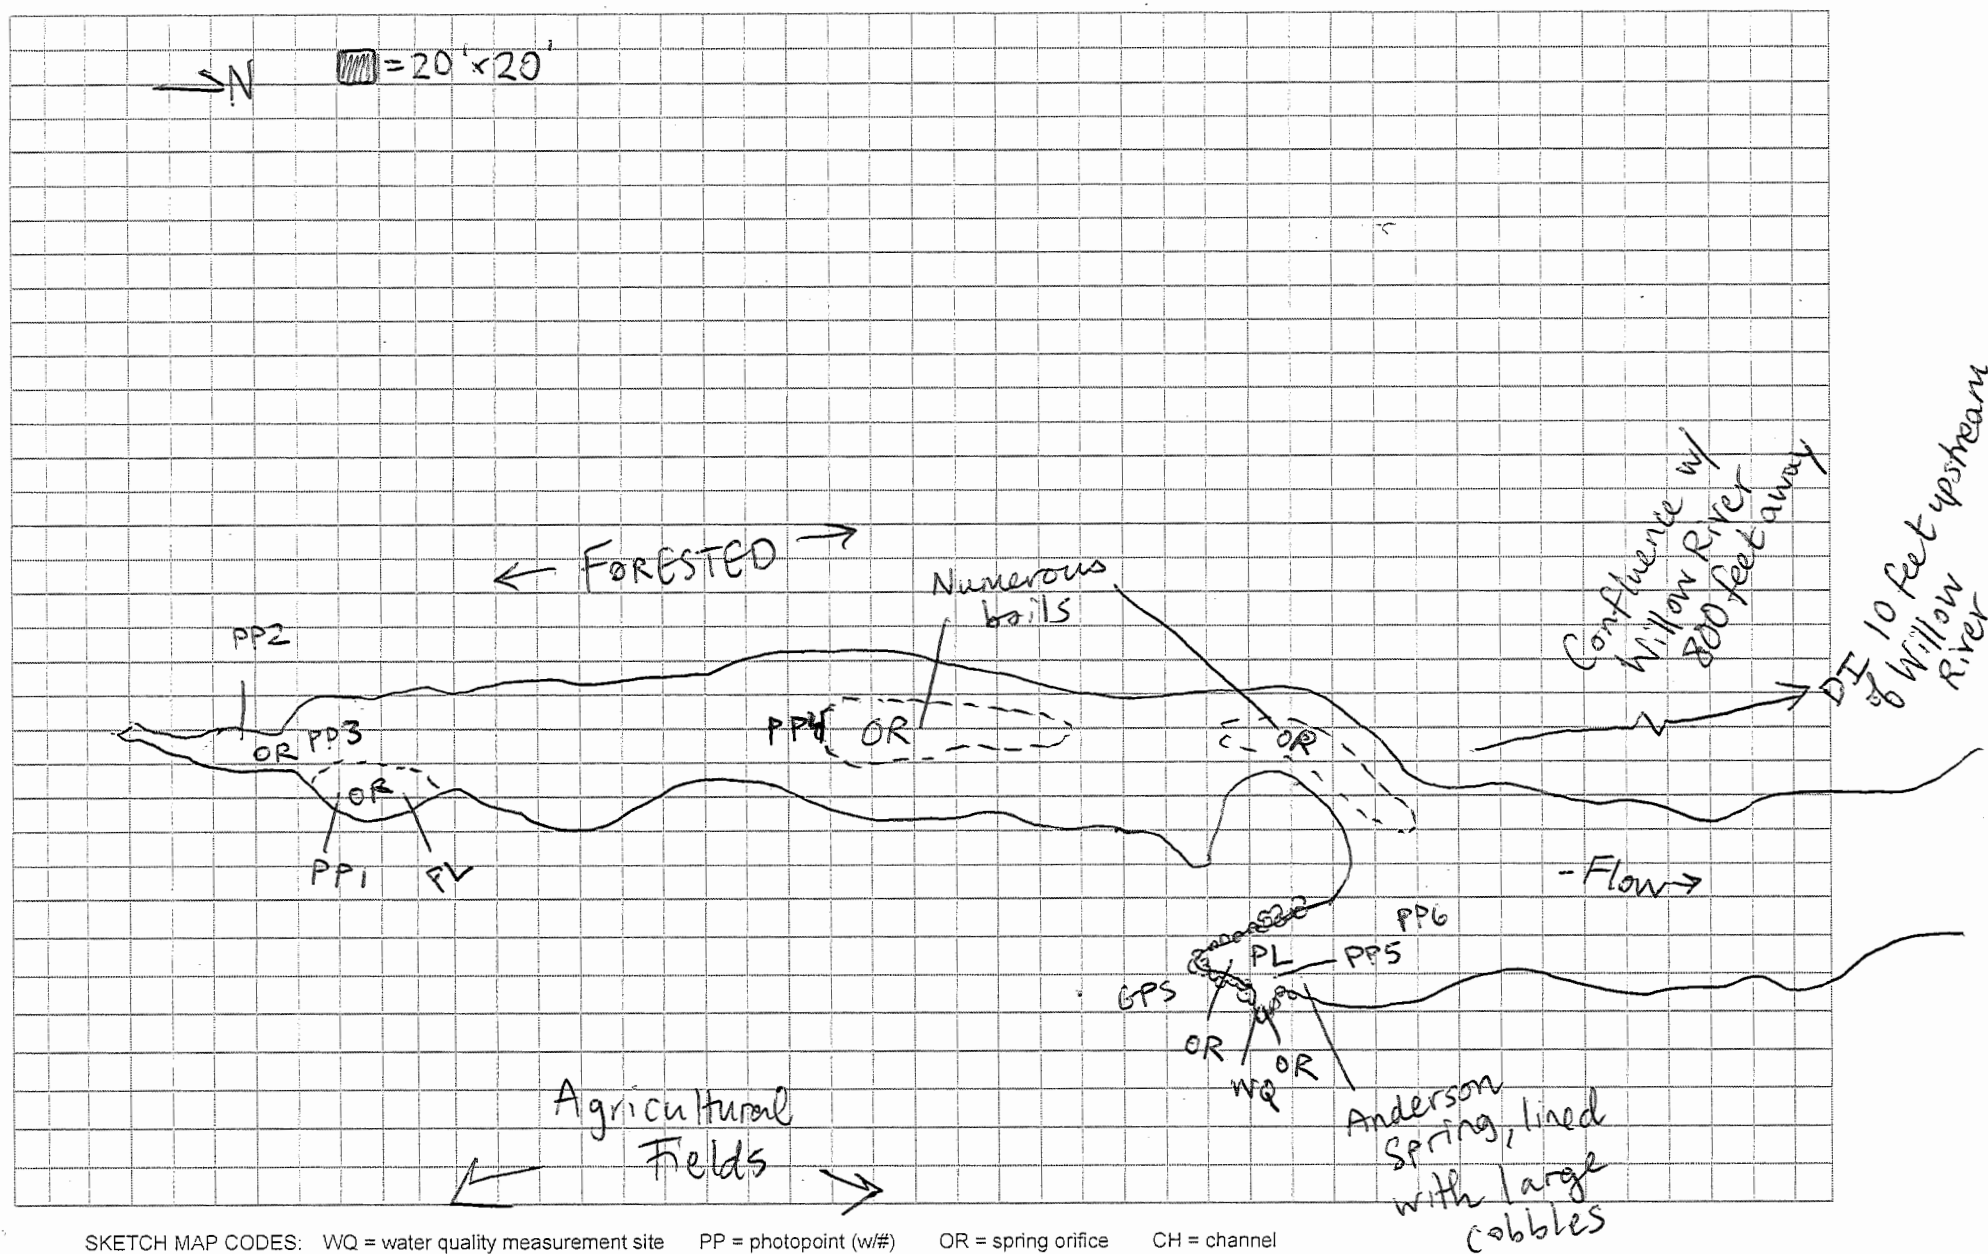 N
= 20' x 20'
FORESTED
Numerous
boils
Confluence w/
Willow River
800 feet away
DI 10 feet upstream
of Willow
River
PP2
OR
PP3
OR
PP1
PP4
OR
OR
Flow
PP6
PP5
PL
GPS
OR
WQ
OR
Anderson
Spring, lined
with large
cobbles
Agricultural
Fields
SKETCH MAP CODES: WQ = water quality measurement site PP = photopoint (w/#) OR = spring orifice CH = channel